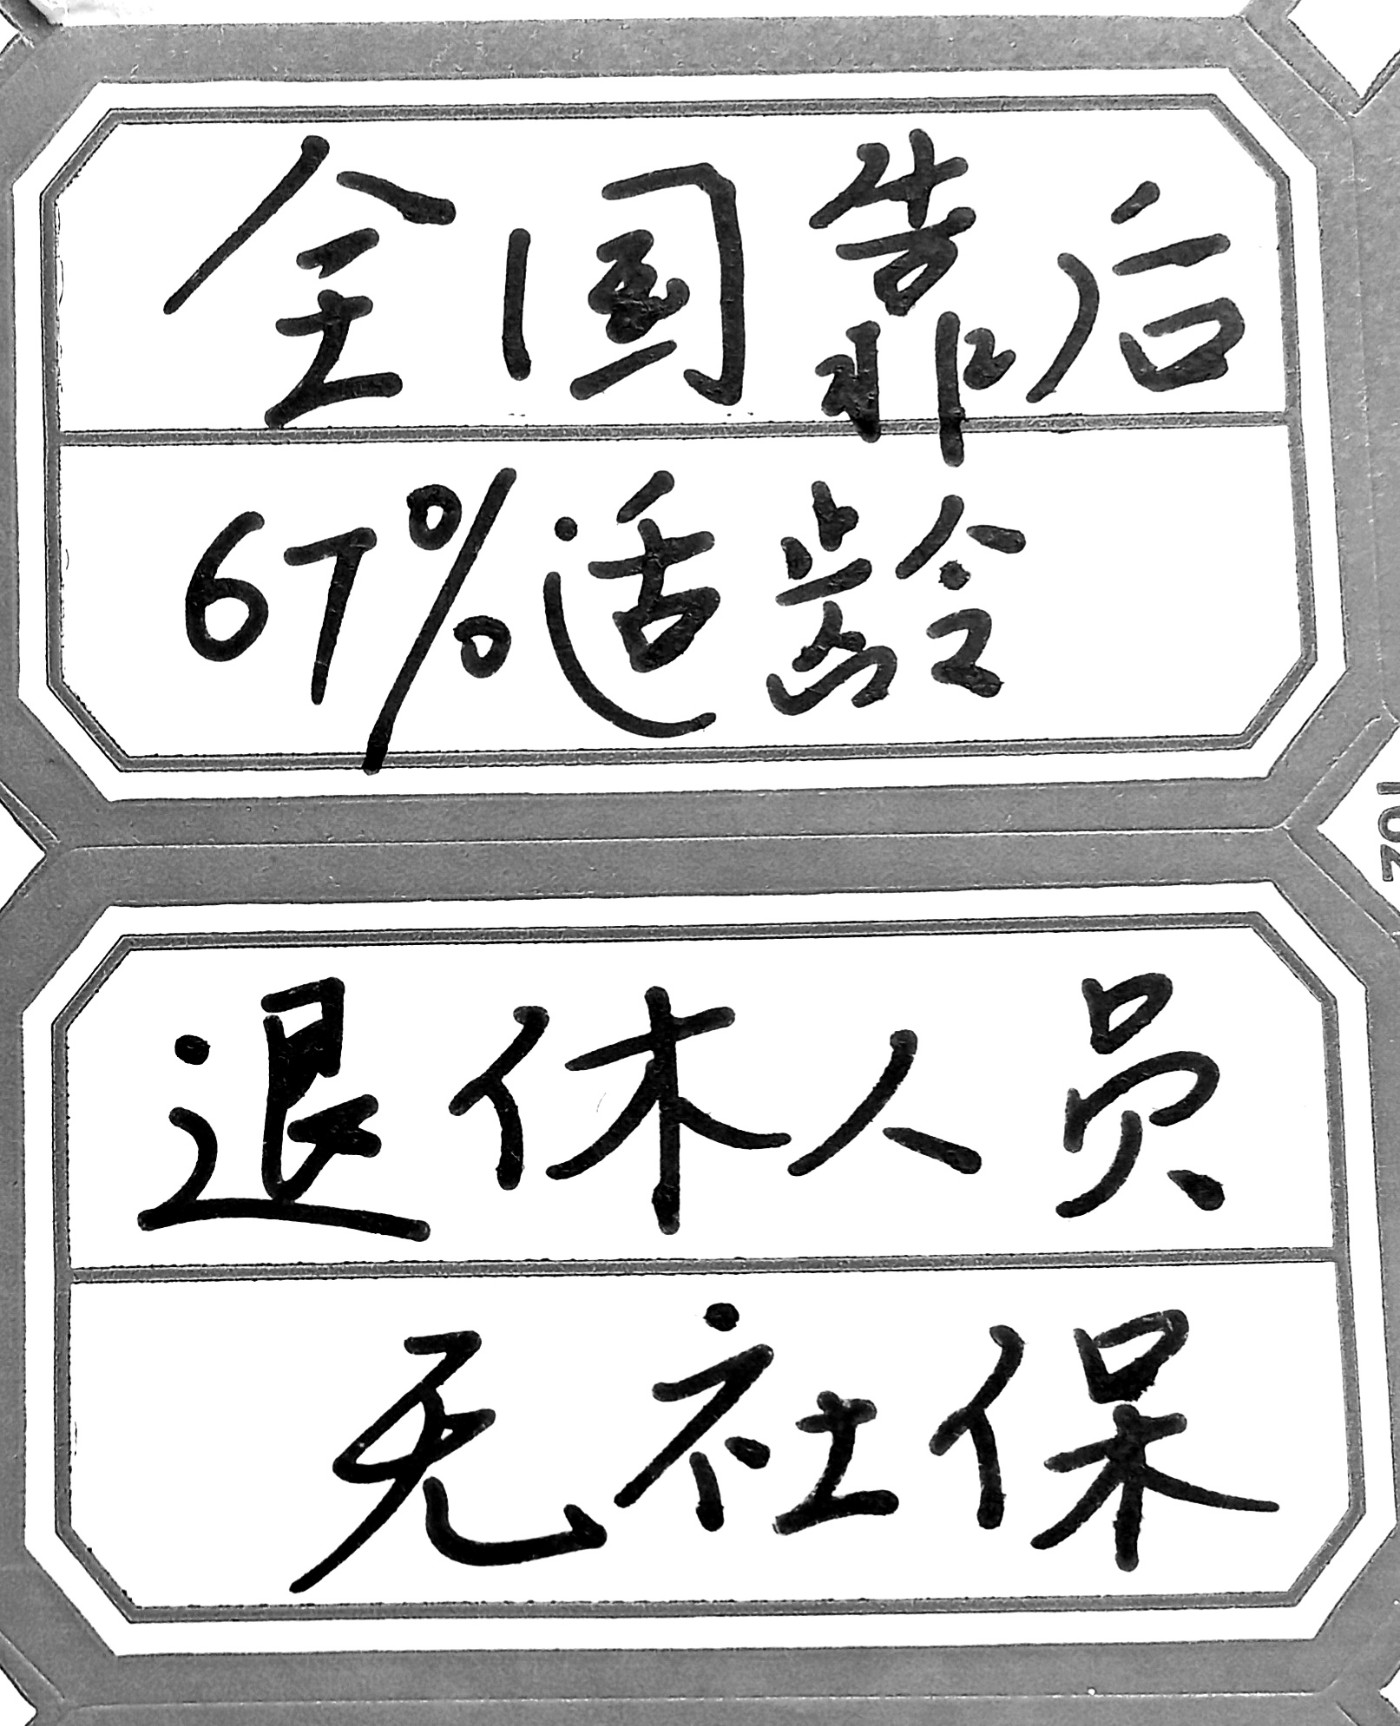 全国靠后
67%适龄
退休人员
无社保